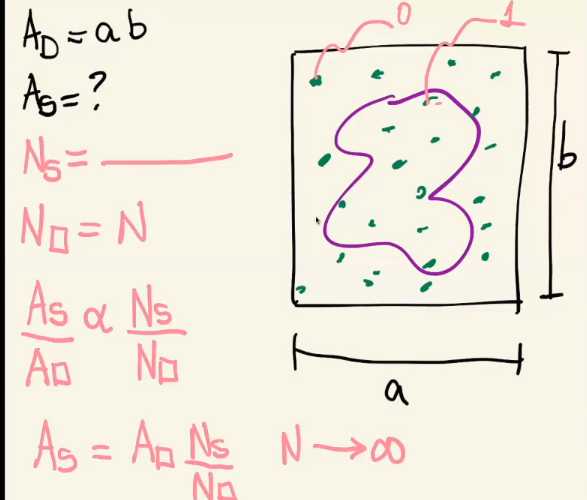 A□ = a b
As = ?
Ns = ______
N□ = N
As/A□ ∝ Ns/N□
As = A□ Ns/N□ N → ∞
0
1
b
a